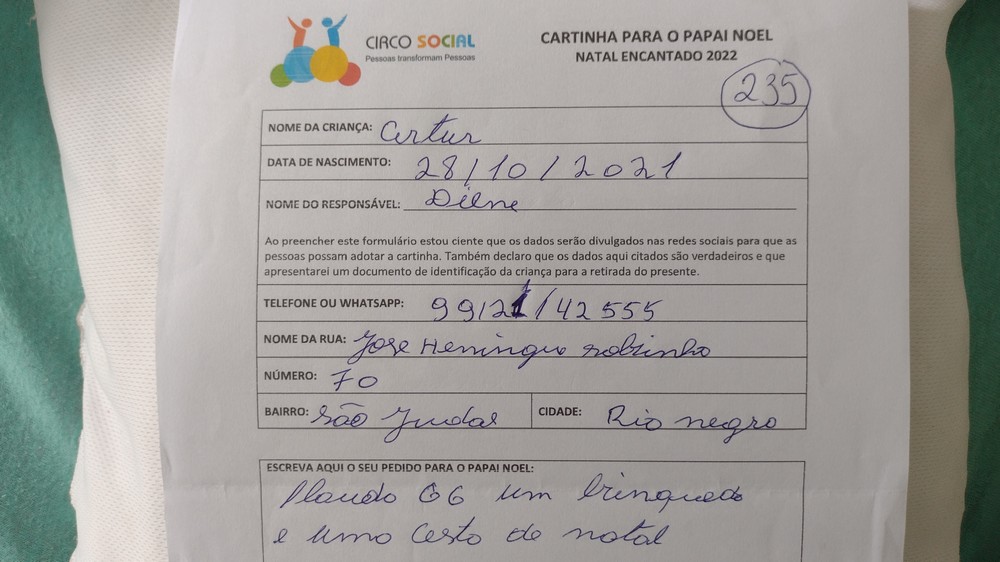 CIRCO SOCIAL
Pessoas transformam Pessoas
CARTINHA PARA O PAPAI NOEL
NATAL ENCANTADO 2022
235
NOME DA CRIANÇA: Artur
DATA DE NASCIMENTO: 28/10/2021
NOME DO RESPONSÁVEL: Dilene
Ao preencher este formulário estou ciente que os dados serão divulgados nas redes sociais para que as
pessoas possam adotar a cartinha. Também declaro que os dados aqui citados são verdadeiros e que
apresentarei um documento de identificação da criança para a retirada do presente.
TELEFONE OU WHATSAPP: 99121/42555
NOME DA RUA: Jose
NÚMERO: 70
BAIRRO: São Judas CIDADE: Rio negro
ESCREVA AQUI O SEU PEDIDO PARA O PAPAI NOEL:
GG um brinquedo
e uma cesta de natal